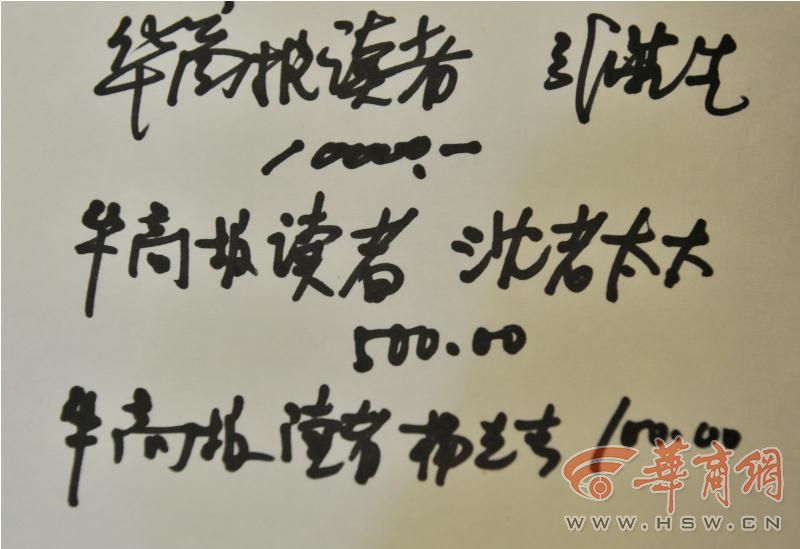 华商报读者
10000.-
华商报读者 沈老太太
500.00
华商报读者 杨先生 100.00
華商網
WWW.HSW.CN